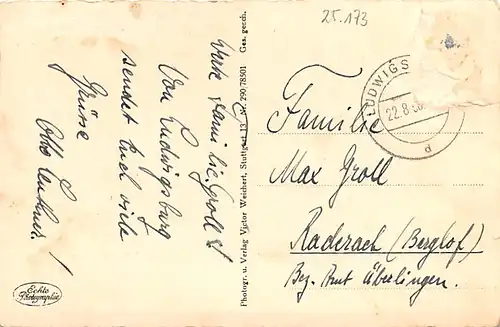 25.173
Werte Familie Groll!
Von Ludwigsburg
sendet Euch viele
Grüsse
Otto
Echte
Photographie
Photogr. u. Verlag Victor Weichert, Stuttgart 13. Nr. 290/78501 Ges. gesch.
LUDWIGS
22.8.
d
Familie
Max Groll
Raderach (Berglof)
Bez. Amt Überlingen.